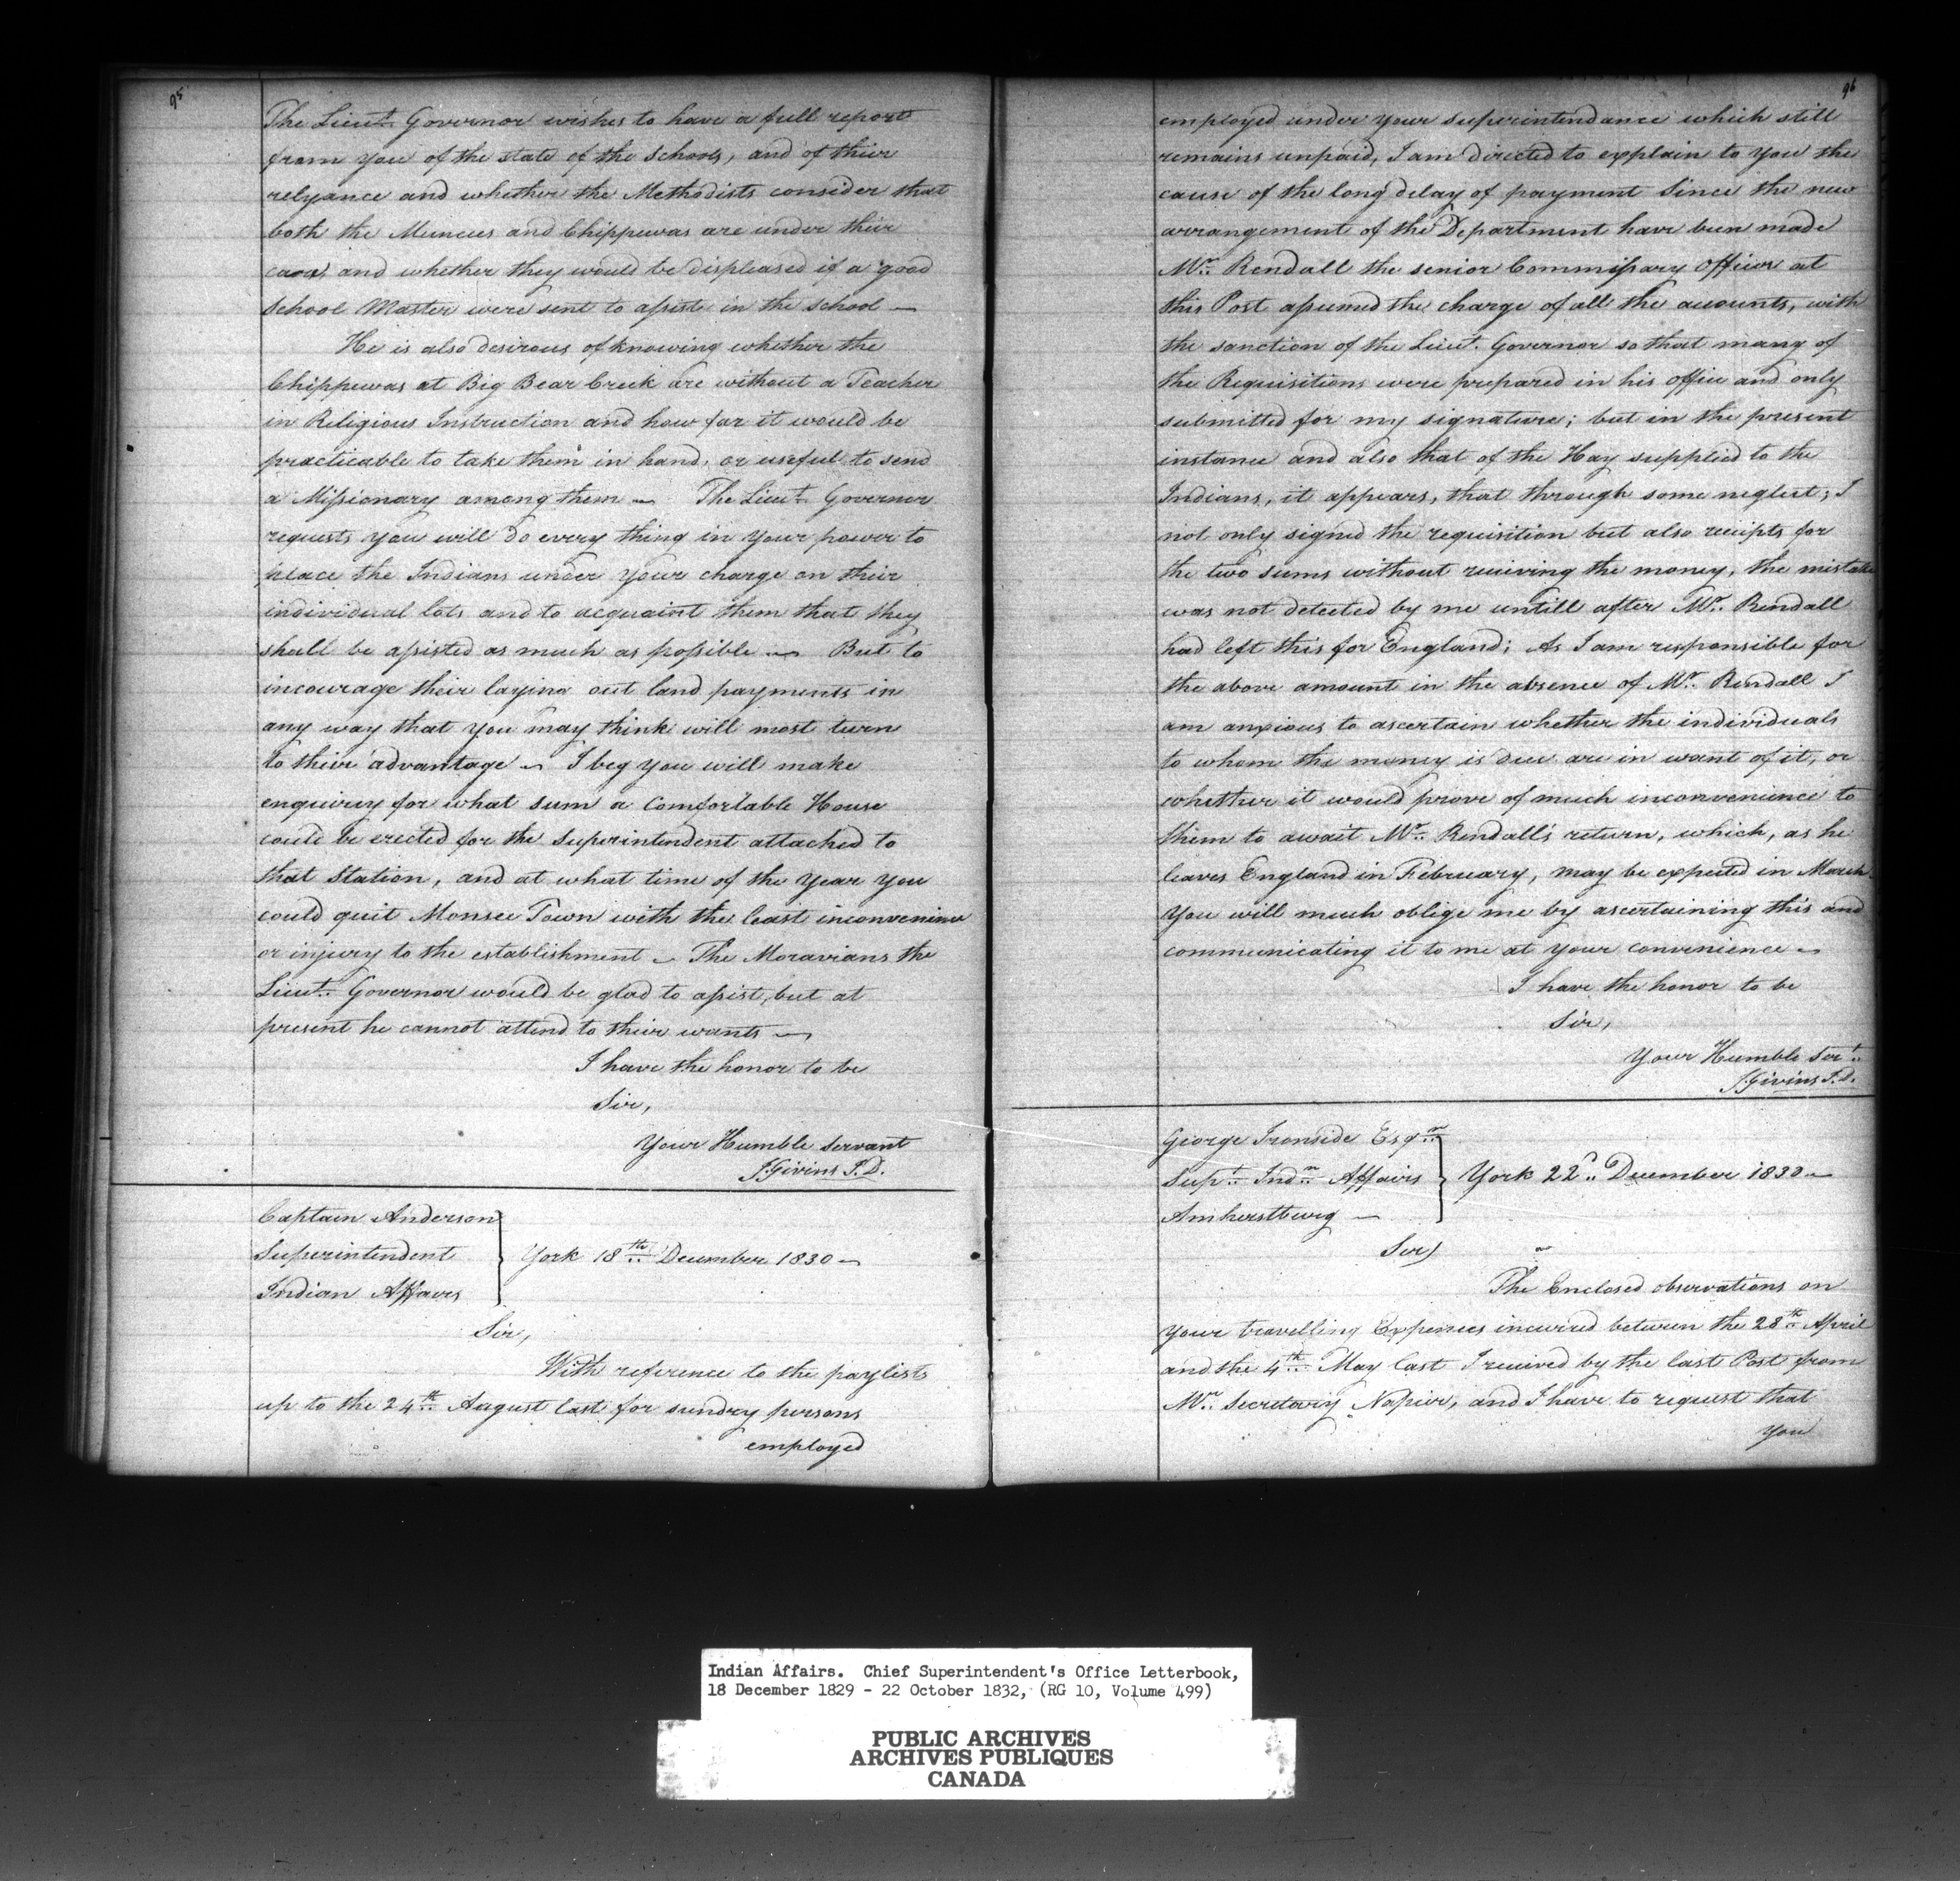 95
The Lieut. Governor wishes to have a full report
from you of the state of the Schools, and of their
relyance and whether the Methodists consider that
both the Muncees and Chippewas are under their
care, and whether they would be displeased if a good
School Master were sent to assist in the school —
He is also desirous of knowing whether the
Chippewas at Big Bear Creek are without a Teacher
in Religious Instruction and how far it would be
practicable to take them in hand, or useful to send
a Missionary among them — The Lieut. Governor
requests you will do every thing in your power to
place the Indians under your charge on their
individual lots and to acquaint them that they
shall be assisted as much as possible — But to
incourage their laying out land payments in
any way that you may think will most turn
to their advantage — I beg you will make
enquirey for what sum a Comfortable House
could be erected for the Superintendent attached to
that Station, and at what time of the Year you
could quit Monsee Town with the least inconvenience
or injury to the establishment — The Moravians the
Lieut. Governor would be glad to assist, but at
present he cannot attend to their wants —
I have the honor to be
Sir,
Your Humble Servant
J. Givins S.D.
Captain Anderson
Superintendent
Indian Affairs
York 18th December 1830 —
Sir,
With reference to the paylists
up to the 24th August last for sundry persons
employed
96
employed under your superintendance which still
remains unpaid, I am directed to explain to you the
cause of the long delay of payment Since the new
arrangement of the Department have been made
Mr. Rendall the senior Commissary Officer at
this Post assumed the charge of all the accounts, with
the sanction of the Lieut. Governor so that many of
the Requisitions were prepared in his office and only
submitted for my signature; but in the present
instance and also that of the Hay supplied to the
Indians, it appears, that through some neglect; I
not only signed the requisition but also receipts for
the two sums without receiving the money, the mistake
was not detected by me untill after Mr. Rendall
had left this for England; As I am responsible for
the above amount in the absence of Mr. Rendall I
am anxious to ascertain whether the individuals
to whom the money is due are in want of it, or
whether it would prove of much inconvenience to
them to await Mr. Rendall's return, which, as he
leaves England in February, may be expected in March
You will much oblige me by ascertaining this and
communicating it to me at your convenience —
I have the honor to be
Sir,
Your Humble Sert.
J. Givins S.D.
George Ironside Esqr.
Supt. Indn. Affairs
Amherstburg —
York 22d. December 1830 —
Sir,
The Enclosed observations on
your travelling Expences incurred between the 28th April
and the 4th May last I received by the last Post from
Mr. Secretary Napier, and I have to request that
you
Indian Affairs. Chief Superintendent's Office Letterbook,
18 December 1829 - 22 October 1832, (RG 10, Volume 499)
PUBLIC ARCHIVES
ARCHIVES PUBLIQUES
CANADA